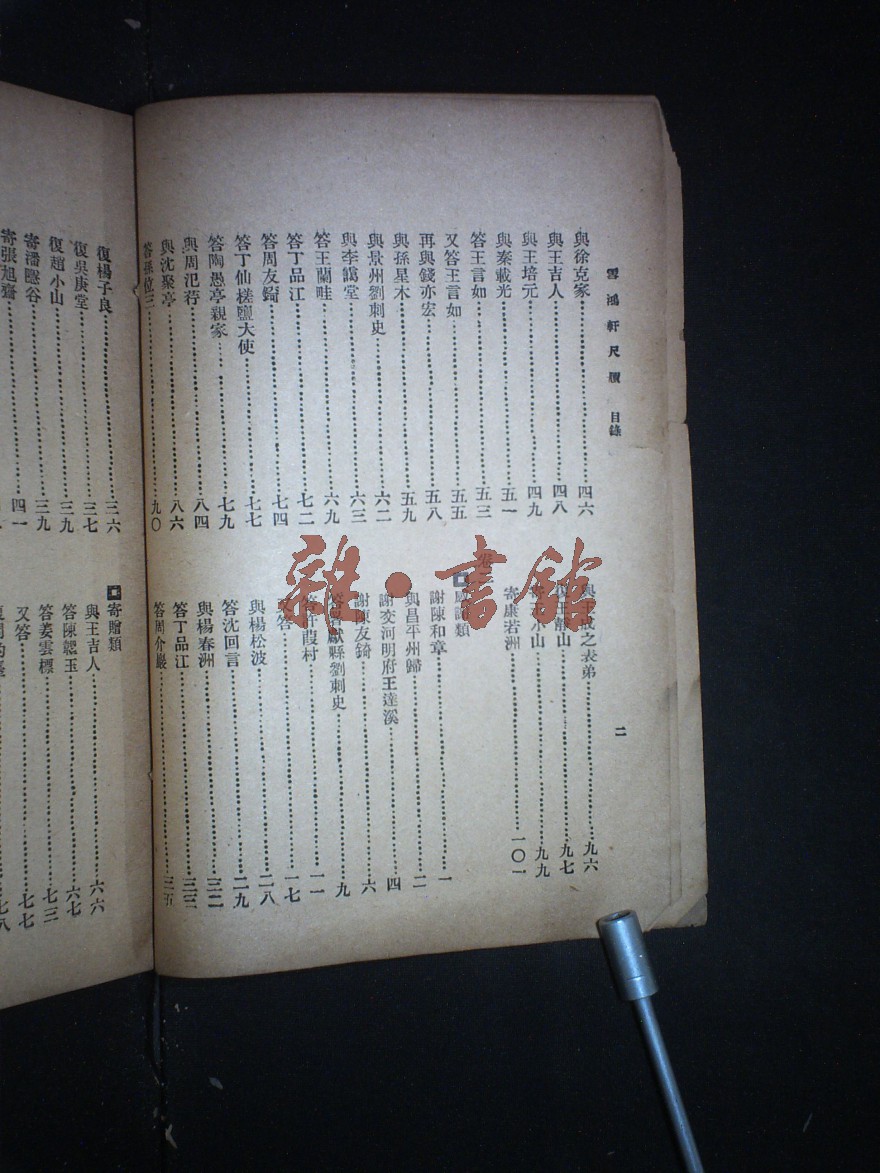 雪鴻軒尺牘 目錄
二
與徐克家 四六
與王吉人 四八
與王培元 四九
與秦載光 五一
答王言如 五三
又答王言如 五五
再與錢亦宏 五八
與孫星木 五九
與景州劉刺史 六二
與李靄堂 六三
答王蘭畦 六九
答丁品江 七二
答周友錡 七四
答丁仙槎鹽大使 七七
答陶愚亭親家 七九
與周氾荇 八四
與沈聚亭 八六
答孫位三 九〇
之表弟 九六
山 九七
小山 九九
寄康若洲 一〇一
卷
類
謝陳和章 一
與昌平州歸 二
謝交河明府王達溪 四
謝陳友錡 六
獻縣劉刺史 九
許葭村 一一
又答 一七
與楊松波 一八
答沈回言 二九
與楊春洲 三二
答丁品江 三三
答周介巖 三五
復楊子良 三六
復吳庚堂 三七
復趙小山 三九
寄潘谷 三九
寄張旭齋 四一
寄贈類
與王吉人 六六
答陳玉 六七
答姜雲標 七三
又答 七七
七八
雜·書館